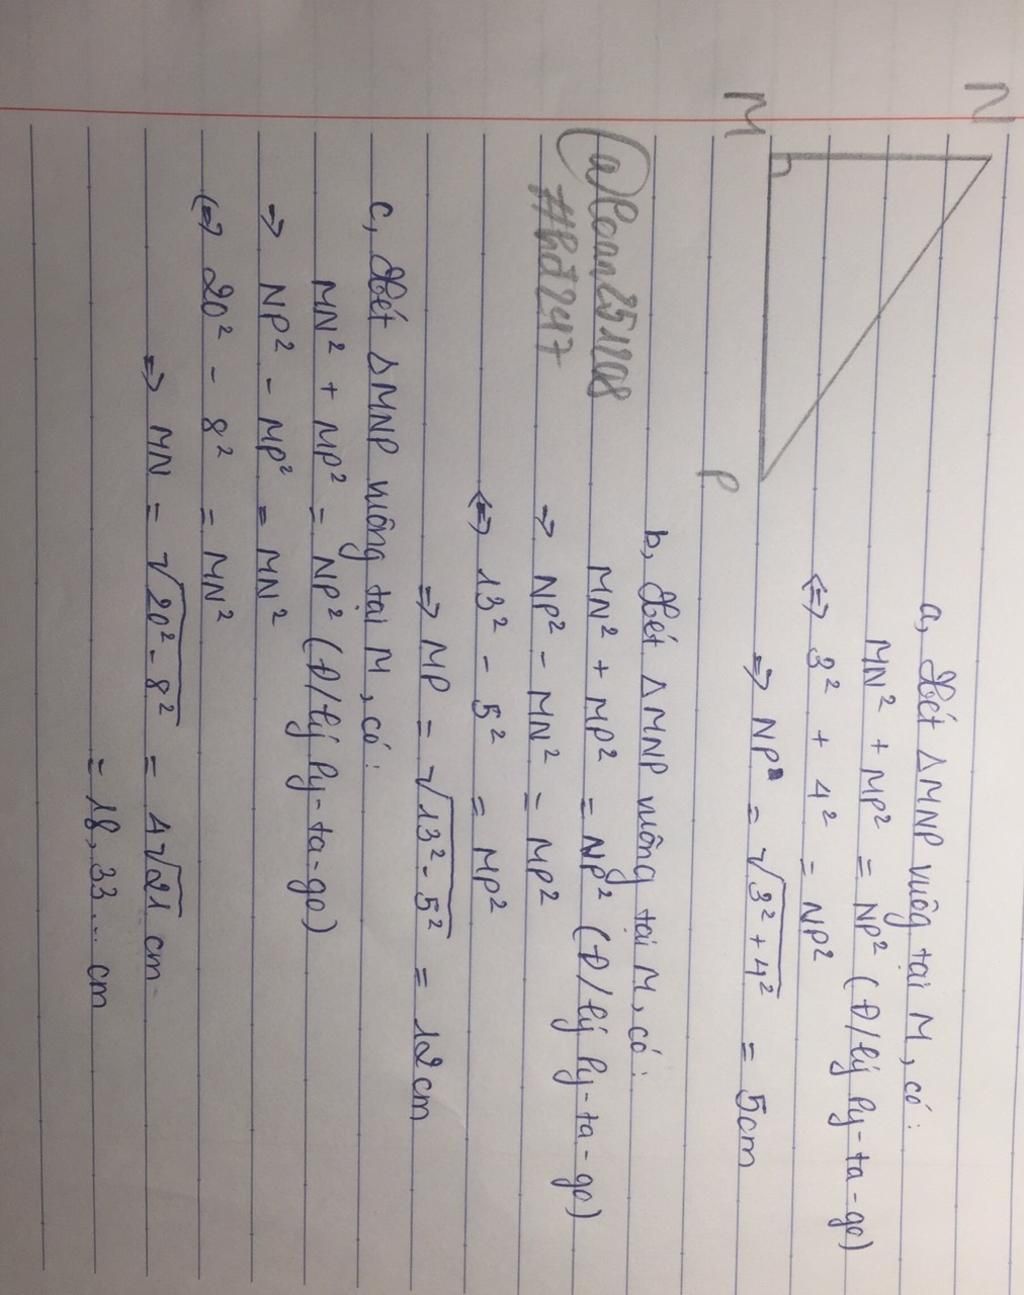 N
M
P
a, Xét ΔMNP vuôg tại M, có:
MN² + MP² = NP² (Đ/lý Py-ta-go)
<=> 3² + 4² = NP²
=> NP = √3²+4² = 5cm
b, Xét ΔMNP vuông tại M, có:
MN² + MP² = NP² (Đ/lý Py-ta-go)
=> NP² - MN² = MP²
<=> 13² - 5² = MP²
=> MP = √13²-5² = 12cm
#hđ247
c, Xét ΔMNP vuông tại M, có:
MN² + MP² = NP² (Đ/lý Py-ta-go)
=> NP² - MP² = MN²
(=> 20² - 8² = MN²
=> MN = √20²-8² = 4√21 cm
= 18,33... cm